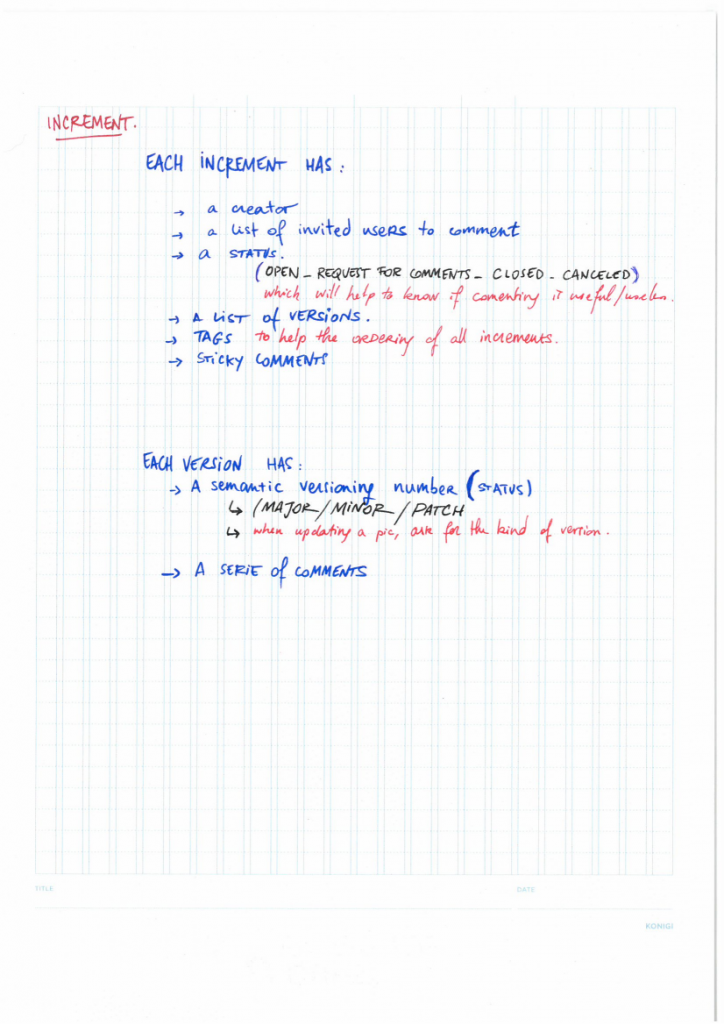 INCREMENT.
EACH INCREMENT HAS:
→ a creator
→ a list of invited users to comment
→ a STATUS.
(OPEN - REQUEST FOR COMMENTS - CLOSED - CANCELED)
which will help to know if comenting it useful/useless.
→ A LIST of VERSIONS.
→ TAGS to help the ORDERING of all increments.
→ STICKY COMMENTS
EACH VERSION HAS:
→ A semantic versioning number (STATUS)
↳ (MAJOR/MINOR/PATCH
↳ when updating a pic, ask for the kind of version.
→ A SERIE of COMMENTS
TITLE DATE
KONIGI